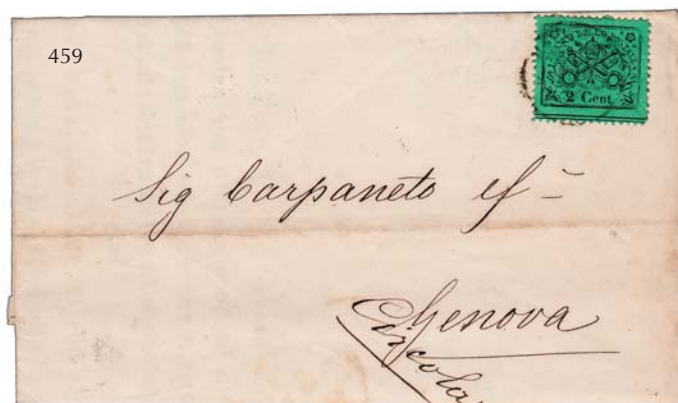 459
2 Cent
Sig Carpaneto
Genova
Circola